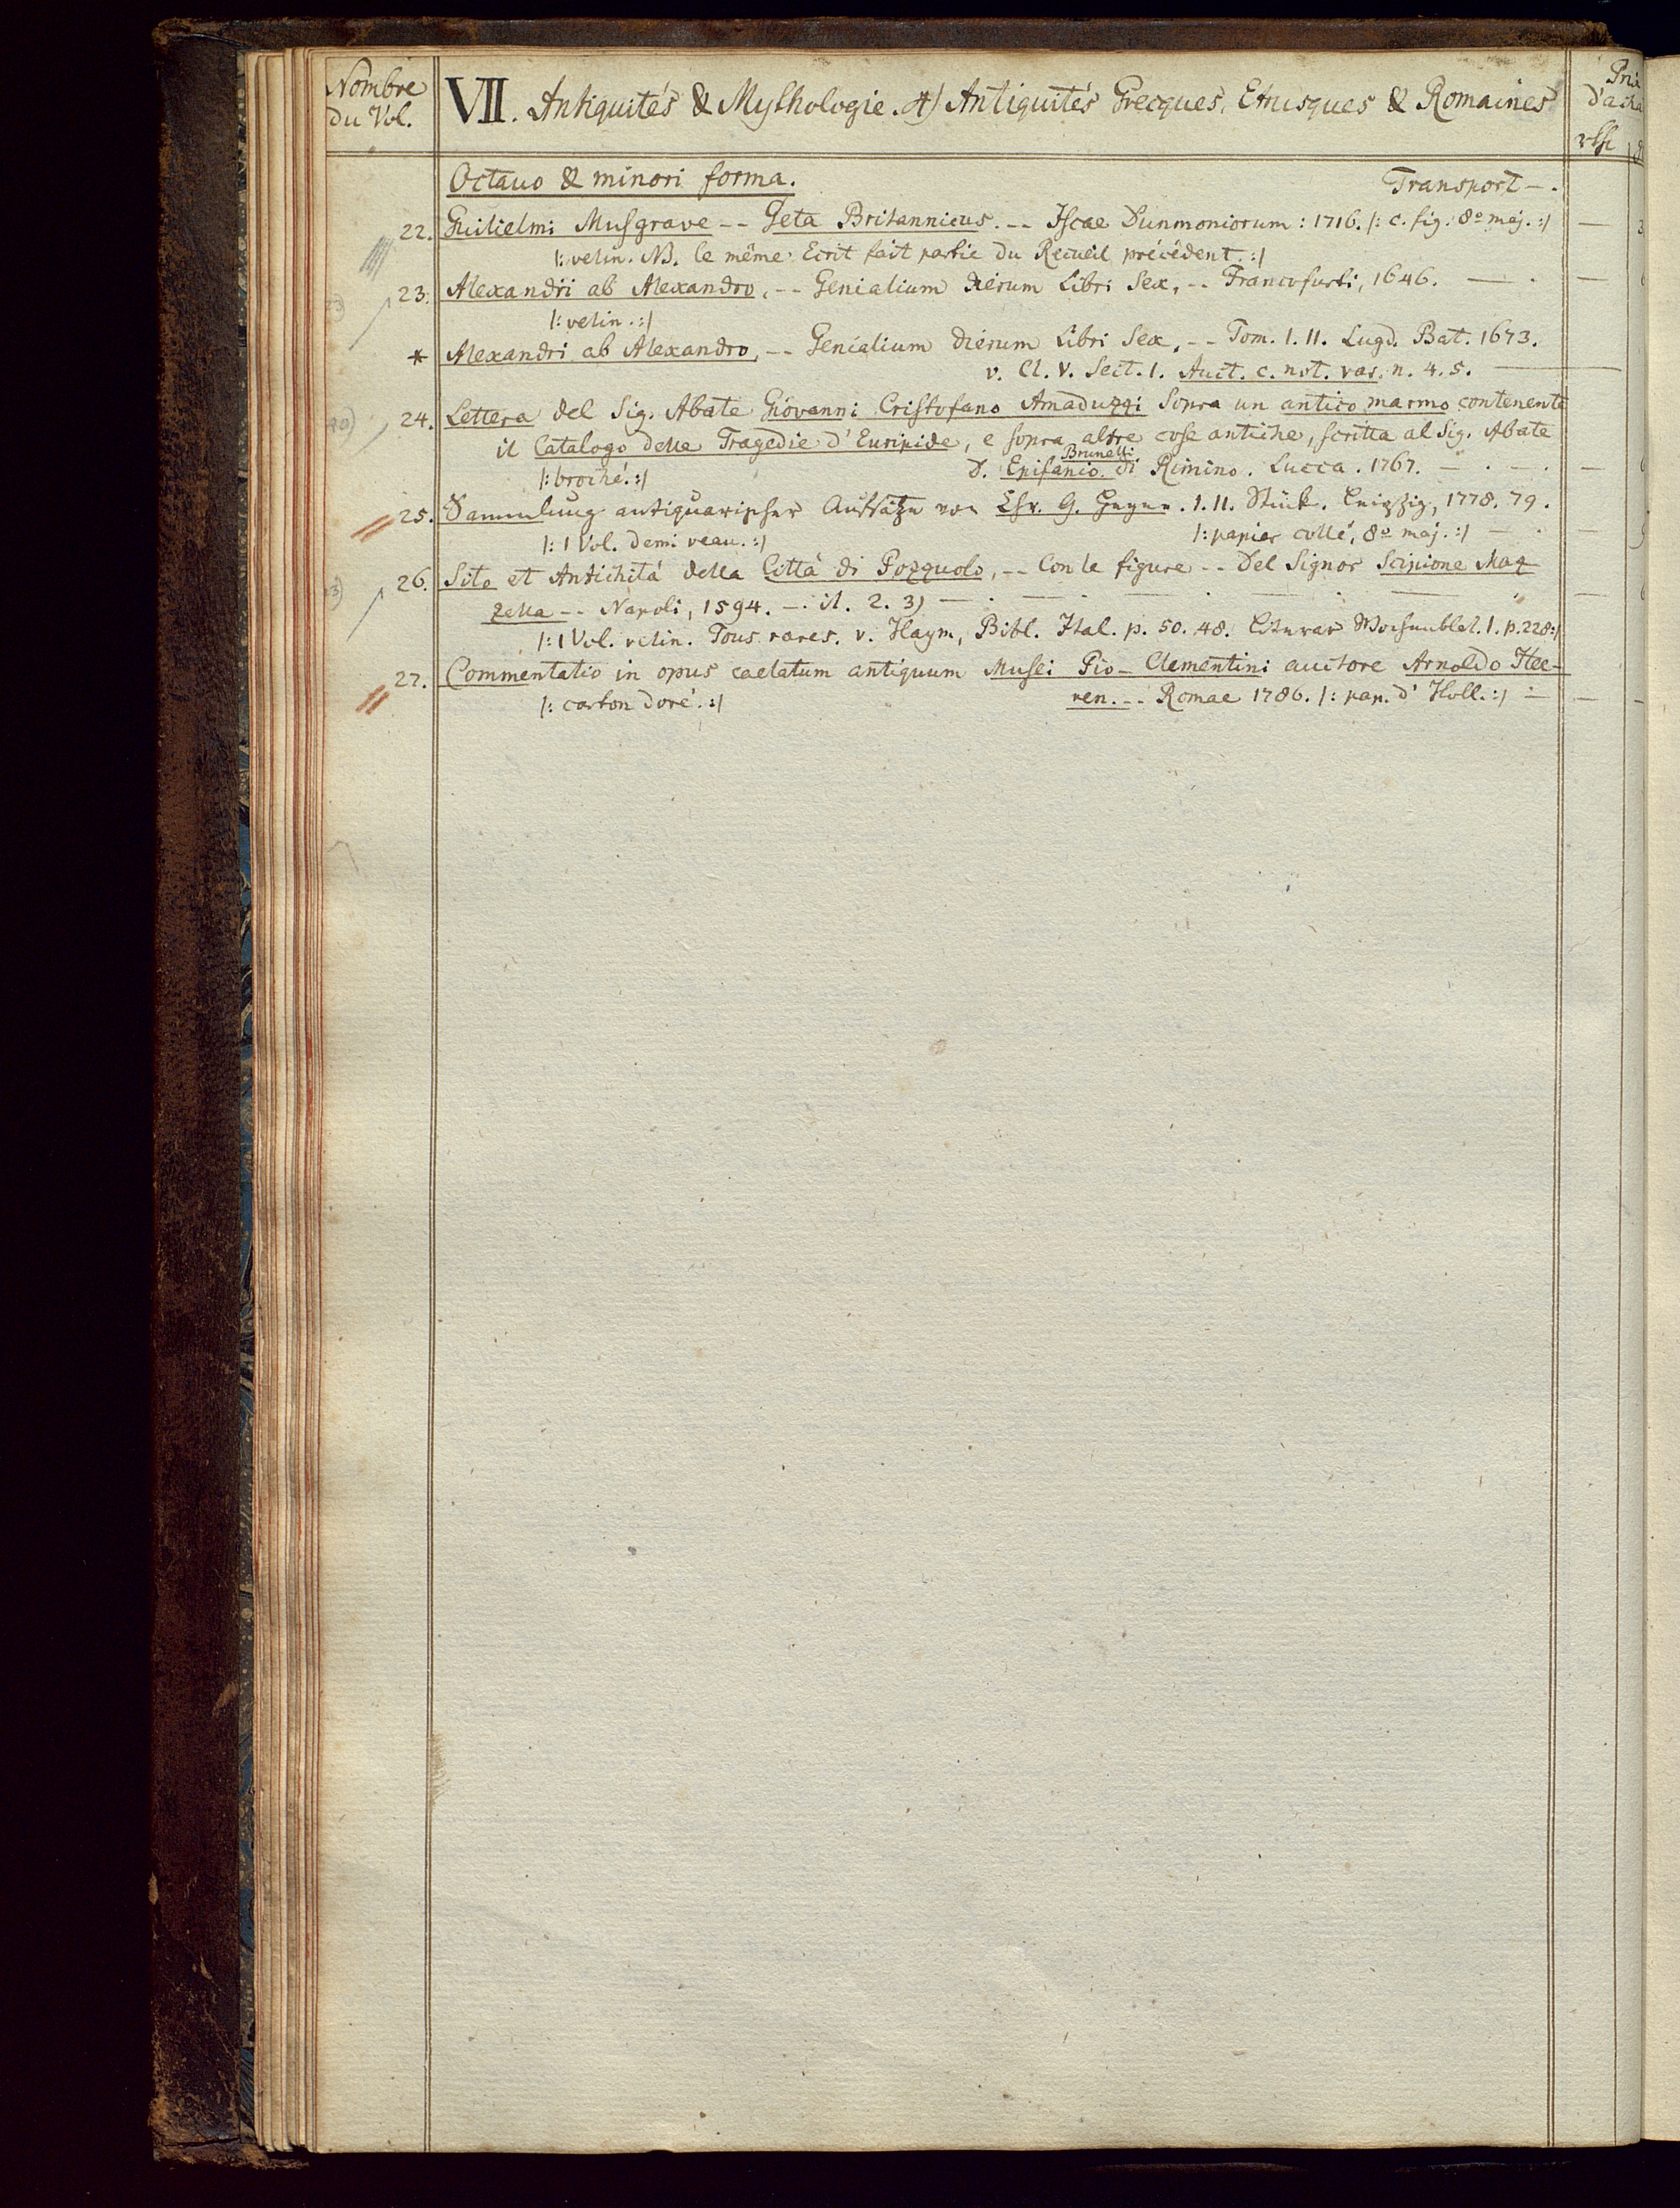 Nombre
du Vol.
VII. Antiquités & Mythologie. A) Antiquités Grecques, Etrusques & Romaines
Octavo & minori forma. Transport —.
22. Guilielmi Musgrave -- Geta Britannicus. -- Iscae Dunmoniorum: 1716. /: c. fig. 8º maj. :/
/: velin. NB. le même Ecrit fait partie du Recueil précédent. :/
23. Alexandri ab Alexandro, -- Genialium dierum Libri Sex, -- Francofurti, 1646.
/: velin. :/
* Alexandri ab Alexandro, -- Genialium dierum Libri Sex, -- Tom. I. II. Lugd. Bat. 1673.
v. Cl. V. Sect. I. Auct. c. not. var. n. 4. 5.
24. Lettera del Sig. Abate Giovanni Cristofano Amaduzzi sopra un antico marmo contenente
il Catalogo delle Tragedie d'Euripide, e sopra altre cose antiche, scritta al Sig. Abate
D. Epifanio Brunelli di Rimino. Lucca. 1767.
/: broché. :/
25. Sammlung antiquarischer Aufsätze von Chr. G. Heyne. I. II. Stück. Leipzig, 1778. 79.
/: 1 Vol. demi veau. :/ /: papier collé, 8º maj. :/
26. Sito et Antichità della Città di Pozzuolo, -- Con le figure -- Del Signor Scipione Maz
zella -- Napoli, 1594. —. it. 2. 3)
/: 1 Vol. velin. Tous rares. v. Haym, Bibl. Ital. p. 50. 48. Litterar Wochenblat. I. p. 228 :/
27. Commentatio in opus caelatum antiquum Musei Pio-Clementini auctore Arnoldo Hee-
ren. -- Romae 1786. /: pap. d'Holl. :/
/: carton doré. :/